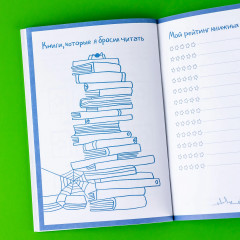 Книги, которые я бросил читать
Мой рейтинг книжных